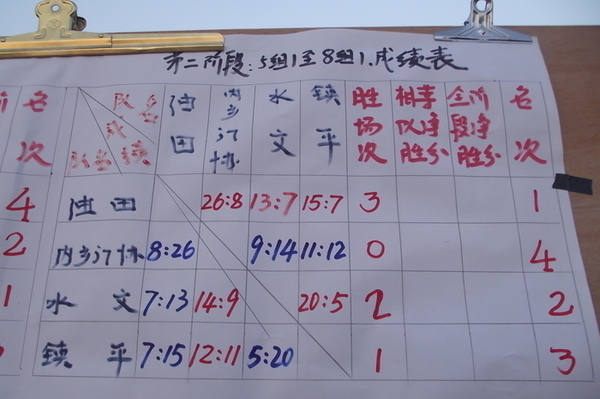 第二阶段:5组1至8组1.成绩表
名次 队名 成绩 队名 油田 内乡门协 水文 镇平 胜场次 相等队净胜分 全阶段净胜分 名次
4 油田 26:8 13:7 15:7 3 1
2 内乡门协 8:26 9:14 11:12 0 4
1 水文 7:13 14:9 20:5 2 2
镇平 7:15 12:11 5:20 1 3